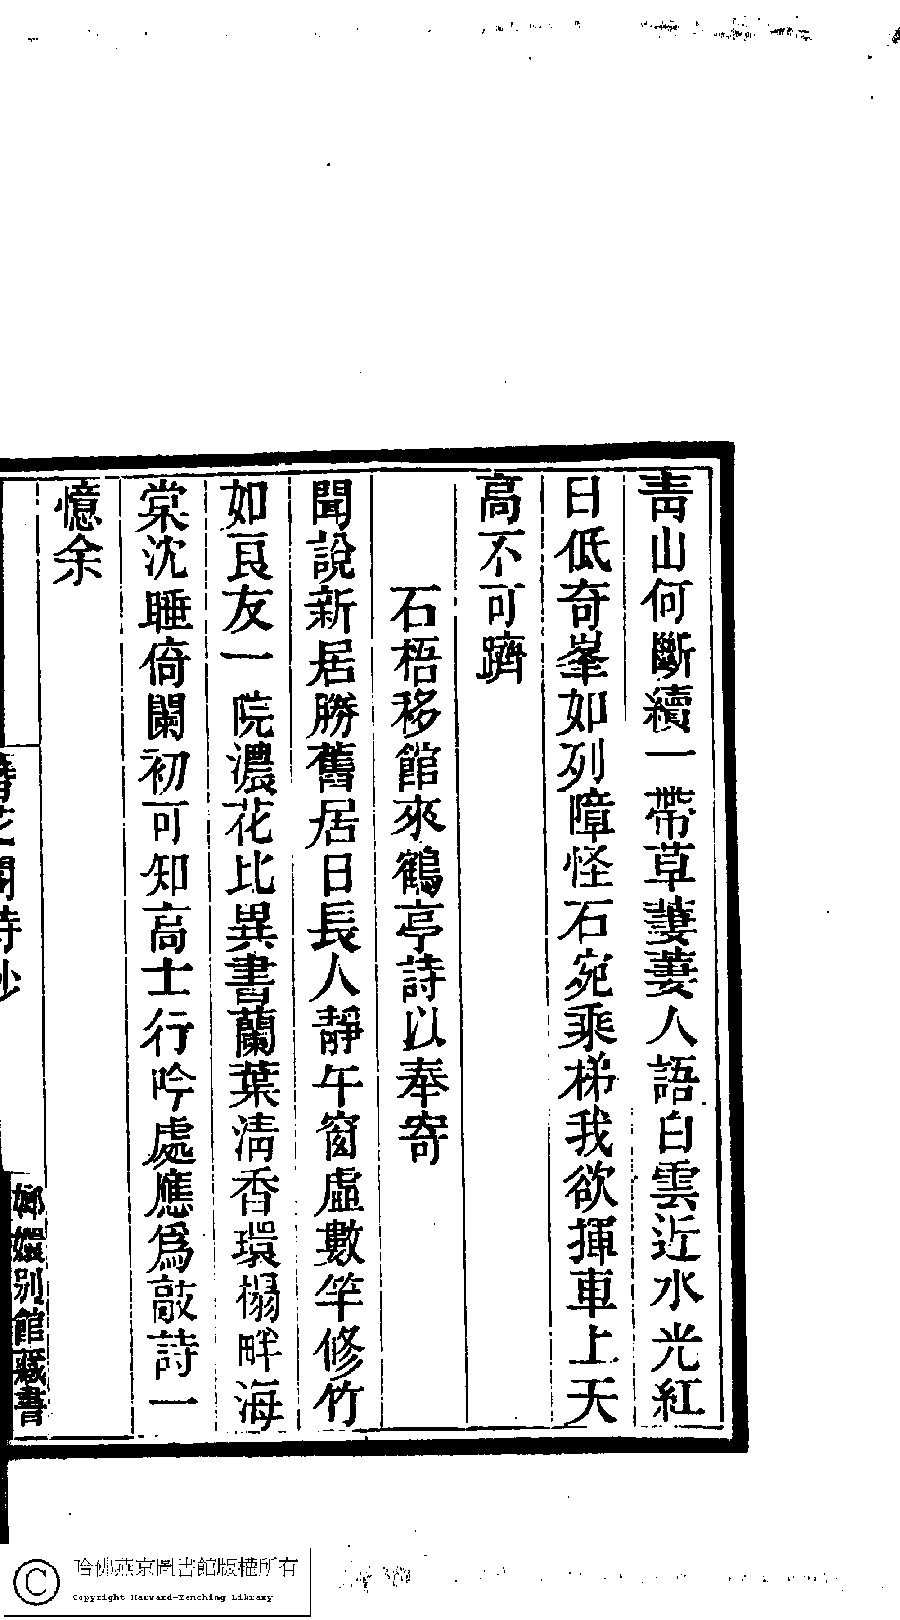 青山何斷續一帶草萋萋人語白雲近水光紅
日低奇峯如列障怪石宛乘梯我欲揮車上天
高不可躋
石梧移館來鶴亭詩以奉寄
聞說新居勝舊居日長人靜午窗虛數竿修竹
如良友一院濃花比異書蘭葉淸香環榻畔海
棠沈睡倚闌初可知高士行吟處應爲敲詩一
憶余
花閣詩鈔
嫏嬛別館藏書
哈佛燕京圖書館版權所有
Copyright Harvard-Yenching Library